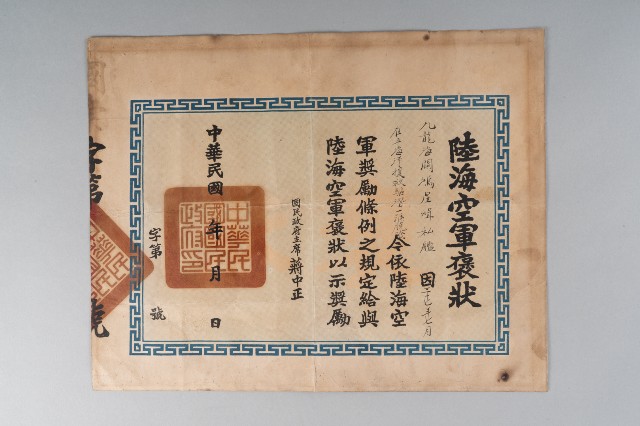 陸海空軍褒狀
九龍海關鴻星緝私艦 因三十七年七月
在 一 令依陸海空
軍獎勵條例之規定給與
陸海空軍褒狀以示獎勵
國民政府主席蔣中正
中華民國 年 月 日
中華民國國民政府印
字第 號
字第 號